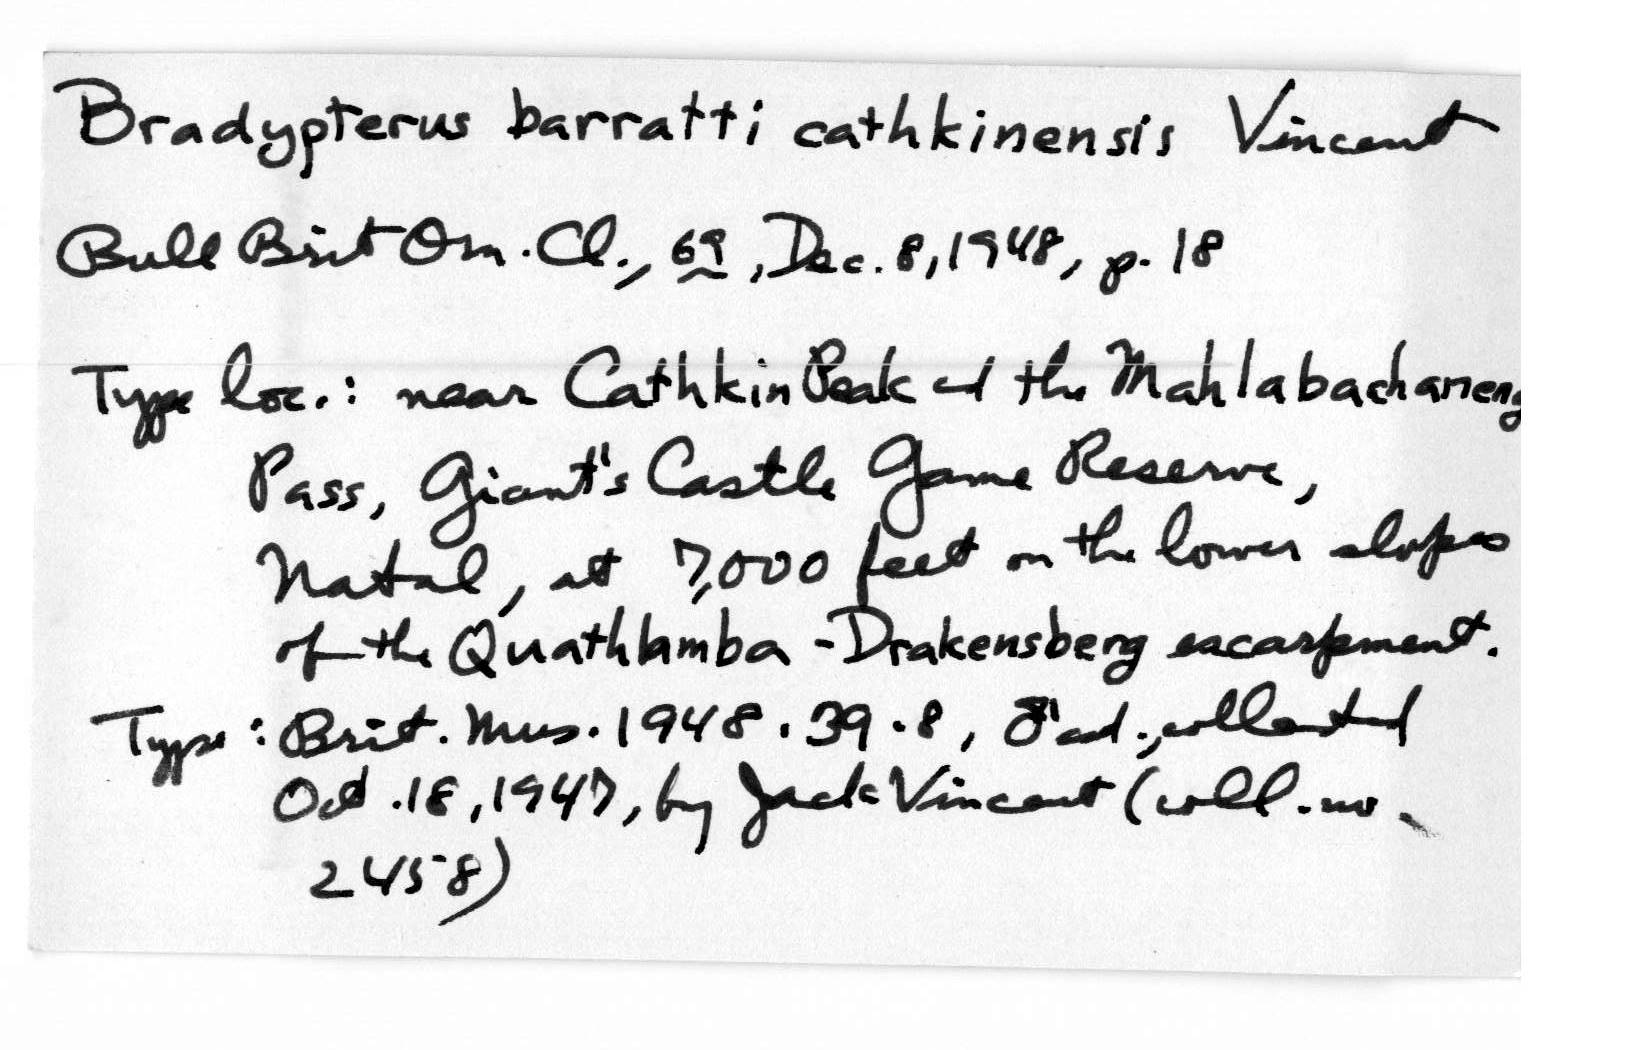 Bradypterus barratti cathkinensis Vincent
Bull Brit Orn. Cl., 69, Dec. 8, 1948, p. 18
Type loc.: near Cathkin Peak at the Mahlabachaneng
Pass, Giant's Castle Game Reserve,
Natal, at 7,000 feet on the lower slopes
of the Quathlamba-Drakensberg escarpment.
Type: Brit. Mus. 1948.39.8, ♂ ad., collected
Oct. 18, 1947, by Jack Vincent (coll. no.
2458)